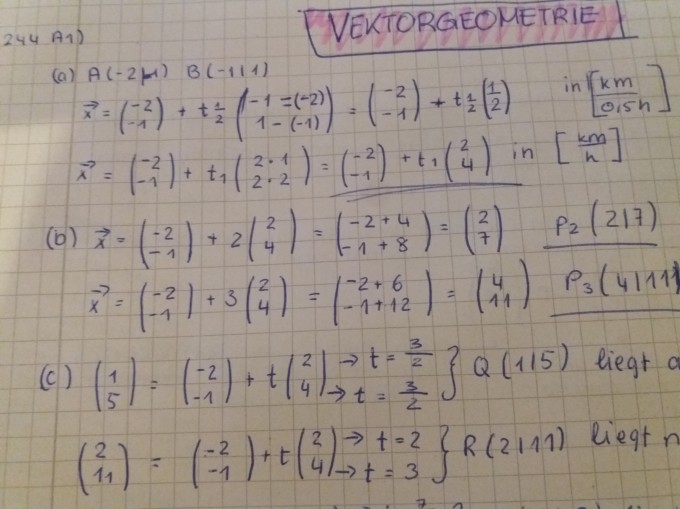 VEKTORGEOMETRIE
244 A1)
(a) A(-2|-1) B(-1|1)
x⃗ = (-2 / -1) + t½ (-1 = (-2) / 1 - (-1)) = (-2 / -1) + t½ (1 / 2) in [km / 0,5h]
x⃗ = (-2 / -1) + t₁ (2·1 / 2·2) = (-2 / -1) + t₁ (2 / 4) in [km / h]
(b) x⃗ = (-2 / -1) + 2 (2 / 4) = (-2 + 4 / -1 + 8) = (2 / 7) P₂ (2|7)
x⃗ = (-2 / -1) + 3 (2 / 4) = (-2 + 6 / -1 + 12) = (4 / 11) P₃ (4|11)
(c) (1 / 5) = (-2 / -1) + t (2 / 4) → t = 3/2 → t = 3/2 } Q (1|5) liegt
(2 / 11) = (-2 / -1) + t (2 / 4) → t = 2 → t = 3 } R (2|11) liegt